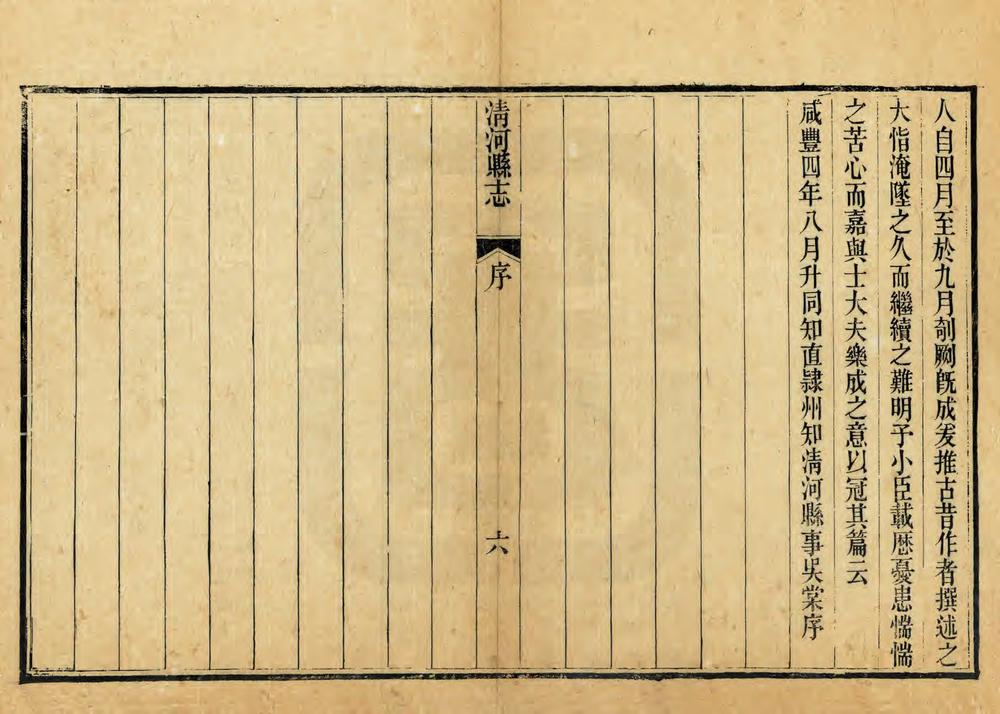 人自四月至於九月剞劂旣成爰推古昔作者撰述之
大恉淹墜之久而繼續之難明予小臣載歷憂患惴惴
之苦心而嘉與士大夫樂成之意以冠其篇云
咸豐四年八月升同知直隷州知清河縣事吳棠序
清河縣志
序
六